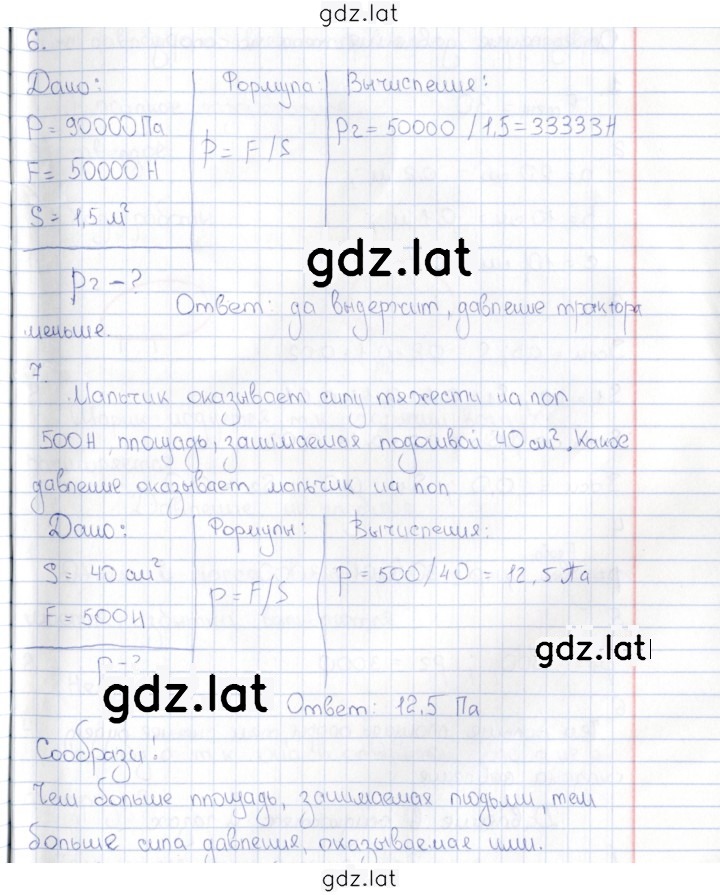 gdz.lat
6.
Дано: Формула: Вычисление:
P = 90000 Па p = F/S P2 = 50000 / 1,5 = 33333 Н
F = 50000 Н
S = 1,5 м²
gdz.lat
P2 - ?
Ответ: да выдержит, давление трактора
меньше.
7.
Мальчик оказывает силу тяжести на пол
500 Н, площадь, занимаемая подошвой 40 см². Какое
давление оказывает мальчик на пол
Дано: Формулы: Вычисления:
S = 40 см² p = F/S p = 500/40 = 12,5 Па
F = 500 Н
gdz.lat
p - ?
gdz.lat
Ответ: 12,5 Па
Сообрази!
Чем больше площадь, занимаемая людьми, тем
больше сила давления, оказываемая ими.
gdz.lat